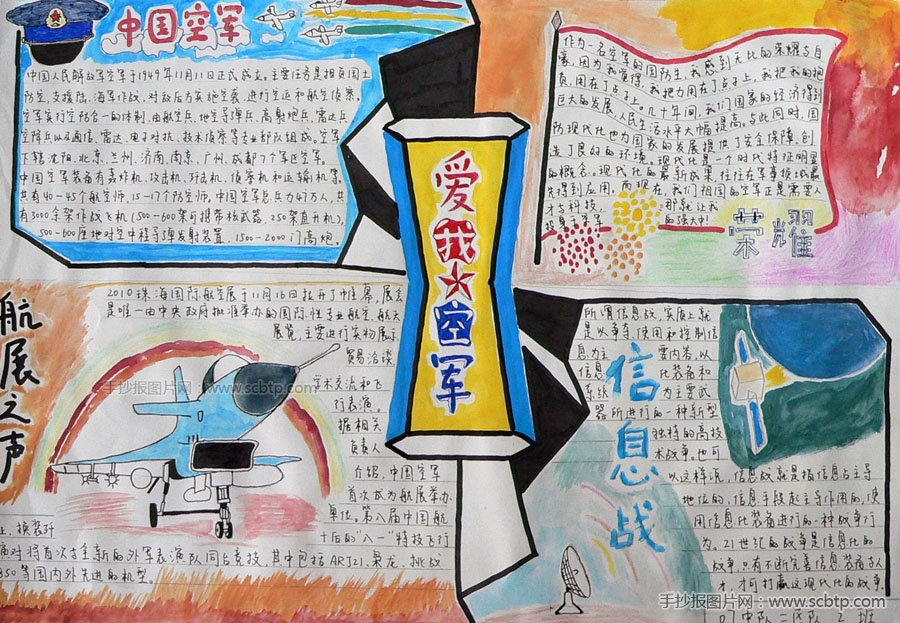 中国空军
中国人民解放军空军于1949年11月11日正式成立。主要任务是担负国土
防空,支援陆、海军作战,对敌后方实施空袭,进行空运和航空侦察。
空军实行空防合一的体制,由航空兵,地空导弹兵,高射炮兵,雷达兵,
空降兵以及通信、雷达、电子对抗、技术侦察等专业部队组成。空军
下辖沈阳,北京、兰州,济南,南京、广州,成都7个军区空军。
中国空军装备有轰炸机、攻击机、歼击机、侦察机和运输机等,
共有40-45个航空师,15-17个防空师,中国空军总兵力47万人,共
有3000余架作战飞机(500-600架可携带核武器,250架直升机),
500-600座地对空中程导弹发射装置,1500-2000门高炮。
作为一名空军的国防生,我感到无比的荣耀与自
豪,因为我觉得,我把力用在了点子上,我把我的抱
负用在了点子上。几十年间,我们国家的经济得到
巨大的发展,人民生活水平大幅提高。与此同时,国
防现代化也为国家的发展提供了安全保障,创
造了良好的环境。现代化是一个时代特征明显
的概念。现代化的最新成果,往往在军事领域最
先得到应用,而现在,我们祖国的空军正是需要人
才与科技,
那就让我
的强大!
荣耀
爱我★空军
航展之声
2010珠海国际航空展于11月16日拉开了帷幕,展会
是唯一由中央政府批准举办的国际性专业航空航天
展览,主要进行实物展示,
贸易洽谈,
学术交流和飞
行表演。
据相关
负责人
介绍,中国空军
首次成为航展举办
单位。第八届中国航
上,换装歼
十后的“八一”特技飞行
队对将首次与全新的外军表演队同台竞技,其中包括ARJ21,枭龙,挑战
850等国内外先进的机型。
信息战
所谓信息战,实质上就
是以夺取、使用和控制信
息为主
要内容,以
信息
化装备和
系统
为主要武
器所进行的一种新型
独特的高技
术战争。也可
以这样说,信息战就是指信息占主导
地位的,信息手段起主导作用的,使
用信息化装备进行的一种战争行
为。21世纪的战争是信息化的
战争,只有不断完善信息装备与人
才,才可打赢这现代化的战争。
中队 二区队 2 班
手抄报图片网:www.scbtp.com
手抄报图片网:www.scbtp.com